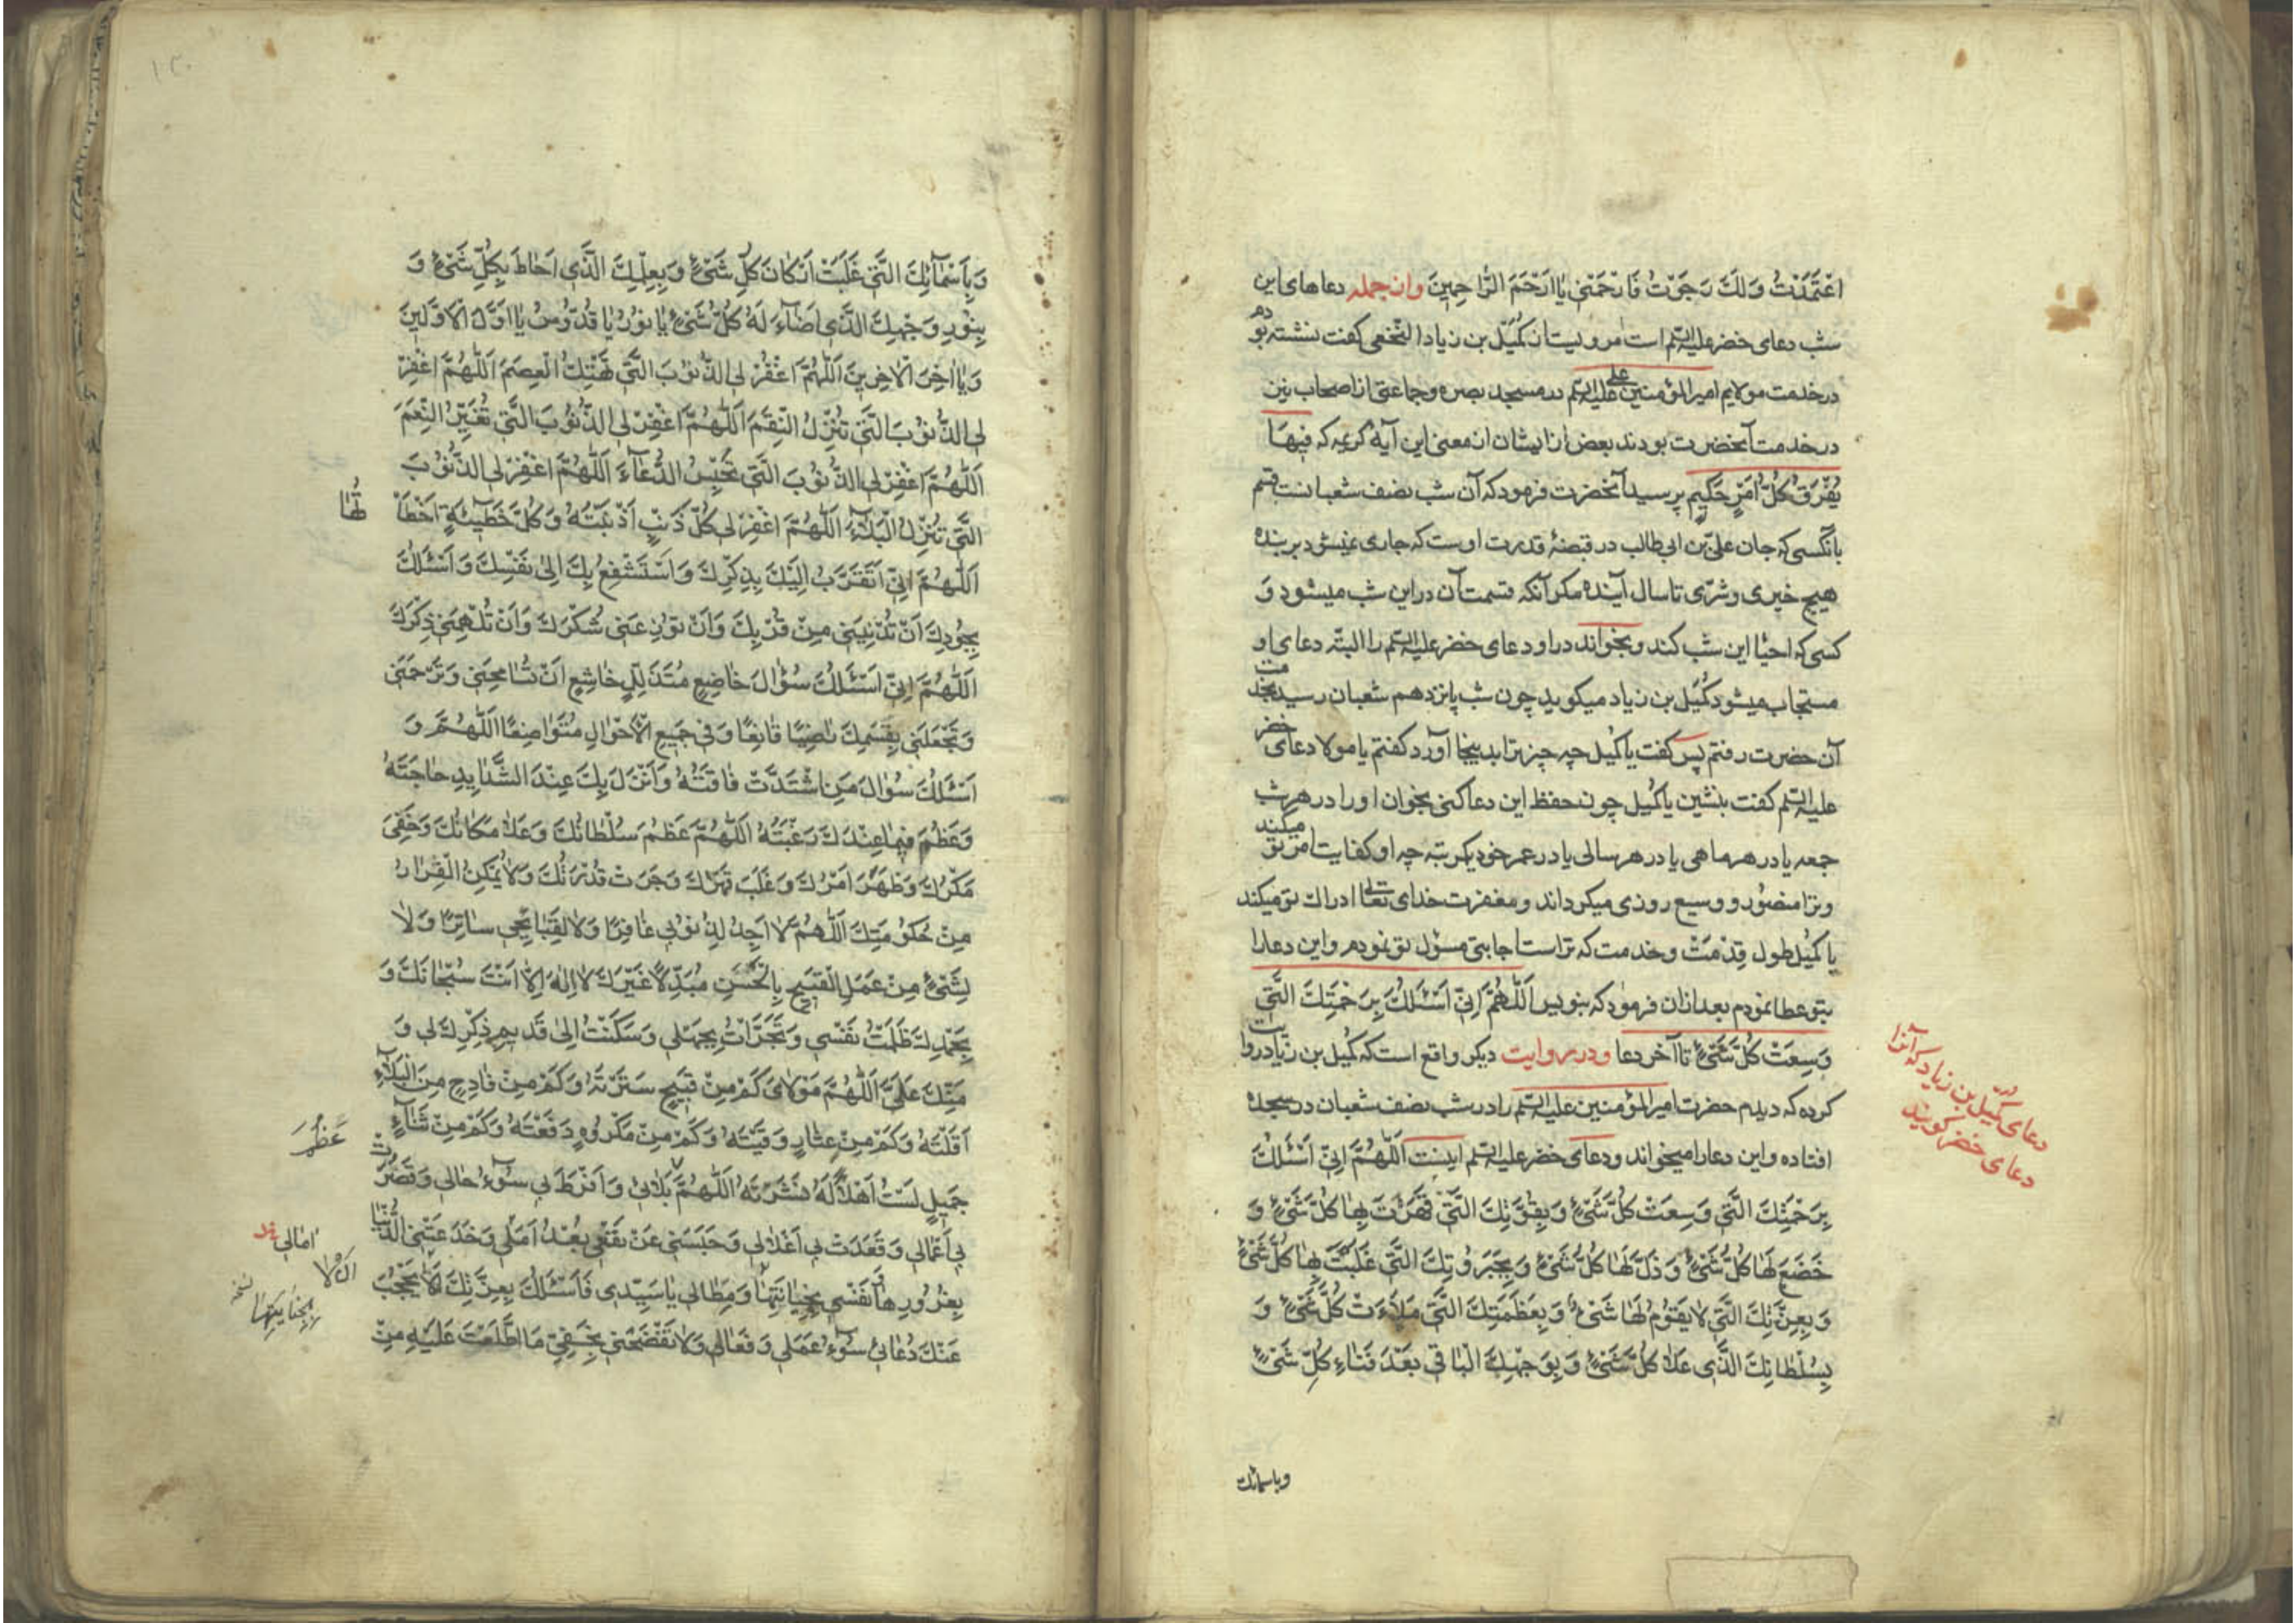 اعْتَمَدْتُ وَلَكَ رَجَوْتُ فَارْحَمْنِی یَا اَرْحَمَ الرَّاحِمِینَ وازجمله دعاهای این
شب دعای خضر علیه السلم است مرویست از کمیل بن زیاد النخعی کفت نشسته بودم
درخدمت مولایم امیرالمؤمنین علی علیه السلم در مسجد بصره وجماعتی از اصحاب نیز
درخدمت آنحضرت بودند بعض از ایشان از معنی این آیهٔ کریمه که فِیهَا
یُفْرَقُ کُلُّ اَمْرٍ حَکِیمٍ پرسید آنحضرت فرمود که آن شب نصف شعبانست قسم
بآنکسی که جان علیّ بن ابی طالب در قبضهٔ قدرت اوست که جاری نمیشود بر بنده
هیچ خیری وشرّی تا سال آینده مکر آنکه قسمت آن در این شب میشود وَ
کسی که احیا این شب کند وبخواند در او دعای خضر علیه السلم را البتّه دعای او
مستجاب میشود کمیل بن زیاد میکوید چون شب پانزدهم شعبان رسید بخدمت
آن حضرت رفتم پس کفت یا کمیل چه چیز ترا بدینجا آورد کفتم یا مولا دعای خضر
علیه السلم کفت بنشین یا کمیل چون حفظ این دعا کنی بخوان او را در هر شب
جمعه یا در هر ماهی یا در هر سالی یا در عمر خود یکمرتبه چه او کفایت امر تو میکند
وترا منصور و وسیع روزی میکرداند ومغفرت خدای تعالی ادراك تو میکند
یا کمیل طول قِدْمَتْ وخدمت که تراست اجابتی مسؤل تو نمودم واین دعا را
بتو عطا نمودم بعد ازان فرمود که بنویس اَللّٰهُمَّ اِنِّی اَسْئَلُكَ بِرَحْمَتِكَ الَّتِی
وَسِعَتْ کُلَّ شَیْءٍ تا آخر دعا ودر روایت دیکر واقع است که کمیل بن زیاد روایت
کرده که دیدم حضرت امیرالمؤمنین علیه السلم را در شب نصف شعبان در سجدهٔ
افتاده واین دعا را میخواند ودعای خضر علیه السلم اینست اَللّٰهُمَّ اِنِّی اَسْئَلُكَ
بِرَحْمَتِكَ الَّتِی وَسِعَتْ کُلَّ شَیْءٍ وَبِقُوَّتِكَ الَّتِی قَهَرْتَ بِهَا کُلَّ شَیْءٍ وَ
خَضَعَ لَهَا کُلُّ شَیْءٍ وَذَلَّ لَهَا کُلُّ شَیْءٍ وَبِجَبَرُوتِكَ الَّتِی غَلَبْتَ بِهَا کُلَّ شَیْءٍ
وَبِعِزَّتِكَ الَّتِی لَا یَقُومُ لَهَا شَیْءٌ وَبِعَظَمَتِكَ الَّتِی مَلَاَتْ کُلَّ شَیْءٍ وَ
بِسُلْطَانِكَ الَّذِی عَلَا کُلَّ شَیْءٍ وَبِوَجْهِكَ الْبَاقِی بَعْدَ فَنَاءِ کُلِّ شَیْءٍ
وباسمائك
دعای کمیل بن زیاد که آنرا
دعای خضر کویند
وَبِاَسْمَآئِكَ الَّتِی غَلَبَتْ اَرْکَانَ کُلِّ شَیْءٍ وَبِعِلْمِكَ الَّذِی اَحَاطَ بِکُلِّ شَیْءٍ وَ
بِنُورِ وَجْهِكَ الَّذِی اَضَآءَ لَهُ کُلُّ شَیْءٍ یَا نُورُ یَا قُدُّوسُ یَا اَوَّلَ الْاَوَّلِینَ
وَیَا اٰخِرَ الْاٰخِرِینَ اَللّٰهُمَّ اغْفِرْ لِیَ الذُّنُوبَ الَّتِی تَهْتِكُ الْعِصَمَ اَللّٰهُمَّ اغْفِرْ
لِیَ الذُّنُوبَ الَّتِی تُنْزِلُ النِّقَمَ اَللّٰهُمَّ اغْفِرْ لِیَ الذُّنُوبَ الَّتِی تُغَیِّرُ النِّعَمَ
اَللّٰهُمَّ اغْفِرْ لِیَ الذُّنُوبَ الَّتِی تَحْبِسُ الدُّعَآءَ اَللّٰهُمَّ اغْفِرْ لِیَ الذُّنُوبَ
الَّتِی تُنْزِلُ الْبَلَآءَ اَللّٰهُمَّ اغْفِرْ لِی کُلَّ ذَنْبٍ اَذْنَبْتُهُ وَکُلَّ خَطِیئَةٍ اَخْطَاْ
تُهَا
اَللّٰهُمَّ اِنِّی اَتَقَرَّبُ اِلَیْكَ بِذِکْرِكَ وَاَسْتَشْفِعُ بِكَ اِلٰی نَفْسِكَ وَاَسْئَلُكَ
بِجُودِكَ اَنْ تُدْنِیَنِی مِنْ قُرْبِكَ وَاَنْ تُوزِعَنِی شُکْرَكَ وَاَنْ تُلْهِمَنِی ذِکْرَكَ
اَللّٰهُمَّ اِنِّی اَسْئَلُكَ سُؤَالَ خَاضِعٍ مُتَذَلِّلٍ خَاشِعٍ اَنْ تُسَامِحَنِی وَتَرْحَمَنِی
وَتَجْعَلَنِی بِقِسَمِكَ رَاضِیًا قَانِعًا وَفِی جَمِیعِ الْاَحْوَالِ مُتَوَاضِعًا اَللّٰهُمَّ وَ
اَسْئَلُكَ سُؤَالَ مَنِ اشْتَدَّتْ فَاقَتُهُ وَاَنْزَلَ بِكَ عِنْدَ الشَّدَایِدِ حَاجَتَهُ
وَعَظُمَ فِیمَا عِنْدَكَ رَغْبَتُهُ اَللّٰهُمَّ عَظُمَ سُلْطَانُكَ وَعَلَا مَکَانُكَ وَخَفِیَ
مَکْرُكَ وَظَهَرَ اَمْرُكَ وَغَلَبَ قَهْرُكَ وَجَرَتْ قُدْرَتُكَ وَلَا یُمْکِنُ الْفِرَارُ
مِنْ حُکُومَتِكَ اَللّٰهُمَّ لَا اَجِدُ لِذُنُوبِی غَافِرًا وَلَا لِقَبَایِحِی سَاتِرًا وَلَا
لِشَیْءٍ مِنْ عَمَلِیَ الْقَبِیحِ بِالْحَسَنِ مُبَدِّلًا غَیْرَكَ لَا اِلٰهَ اِلَّا اَنْتَ سُبْحَانَكَ وَ
بِحَمْدِكَ ظَلَمْتُ نَفْسِی وَتَجَرَّاْتُ بِجَهْلِی وَسَکَنْتُ اِلٰی قَدِیمِ ذِکْرِكَ لِی وَ
مَنِّكَ عَلَیَّ اَللّٰهُمَّ مَوْلَایَ کَمْ مِنْ قَبِیحٍ سَتَرْتَهُ وَکَمْ مِنْ فَادِحٍ مِنَ الْبَلَآءِ
اَقَلْتَهُ وَکَمْ مِنْ عِثَارٍ وَقَیْتَهُ وَکَمْ مِنْ مَکْرُوهٍ دَفَعْتَهُ وَکَمْ مِنْ ثَنَآءٍ
جَمِیلٍ لَسْتُ اَهْلًا لَهُ نَشَرْتَهُ اَللّٰهُمَّ بَلَائِی وَاَفْرَطَ بِی سُوٓءُ حَالِی وَقَصُرَتْ
عَظُمَ
بِی اَعْمَالِی وَقَعَدَتْ بِی اَغْلَالِی وَحَبَسَنِی عَنْ نَفْعِی بُعْدُ اَمَلِی وَخَدَعَتْنِی الدُّنْیَا
اٰمالی
بِغُرُورِهَا وَنَفْسِی بِخِیَانَتِهَا وَمِطَالِی یَا سَیِّدِی فَاَسْئَلُكَ بِعِزَّتِكَ اَلَّا یَحْجُبَ
بِجِنَایَتِهَا نسخه
عَنْكَ دُعَائِی سُوٓءُ عَمَلِی وَفَعَالِی وَلَا تَفْضَحْنِی بِخَفِیِّ مَا اطَّلَعْتَ عَلَیْهِ مِنْ